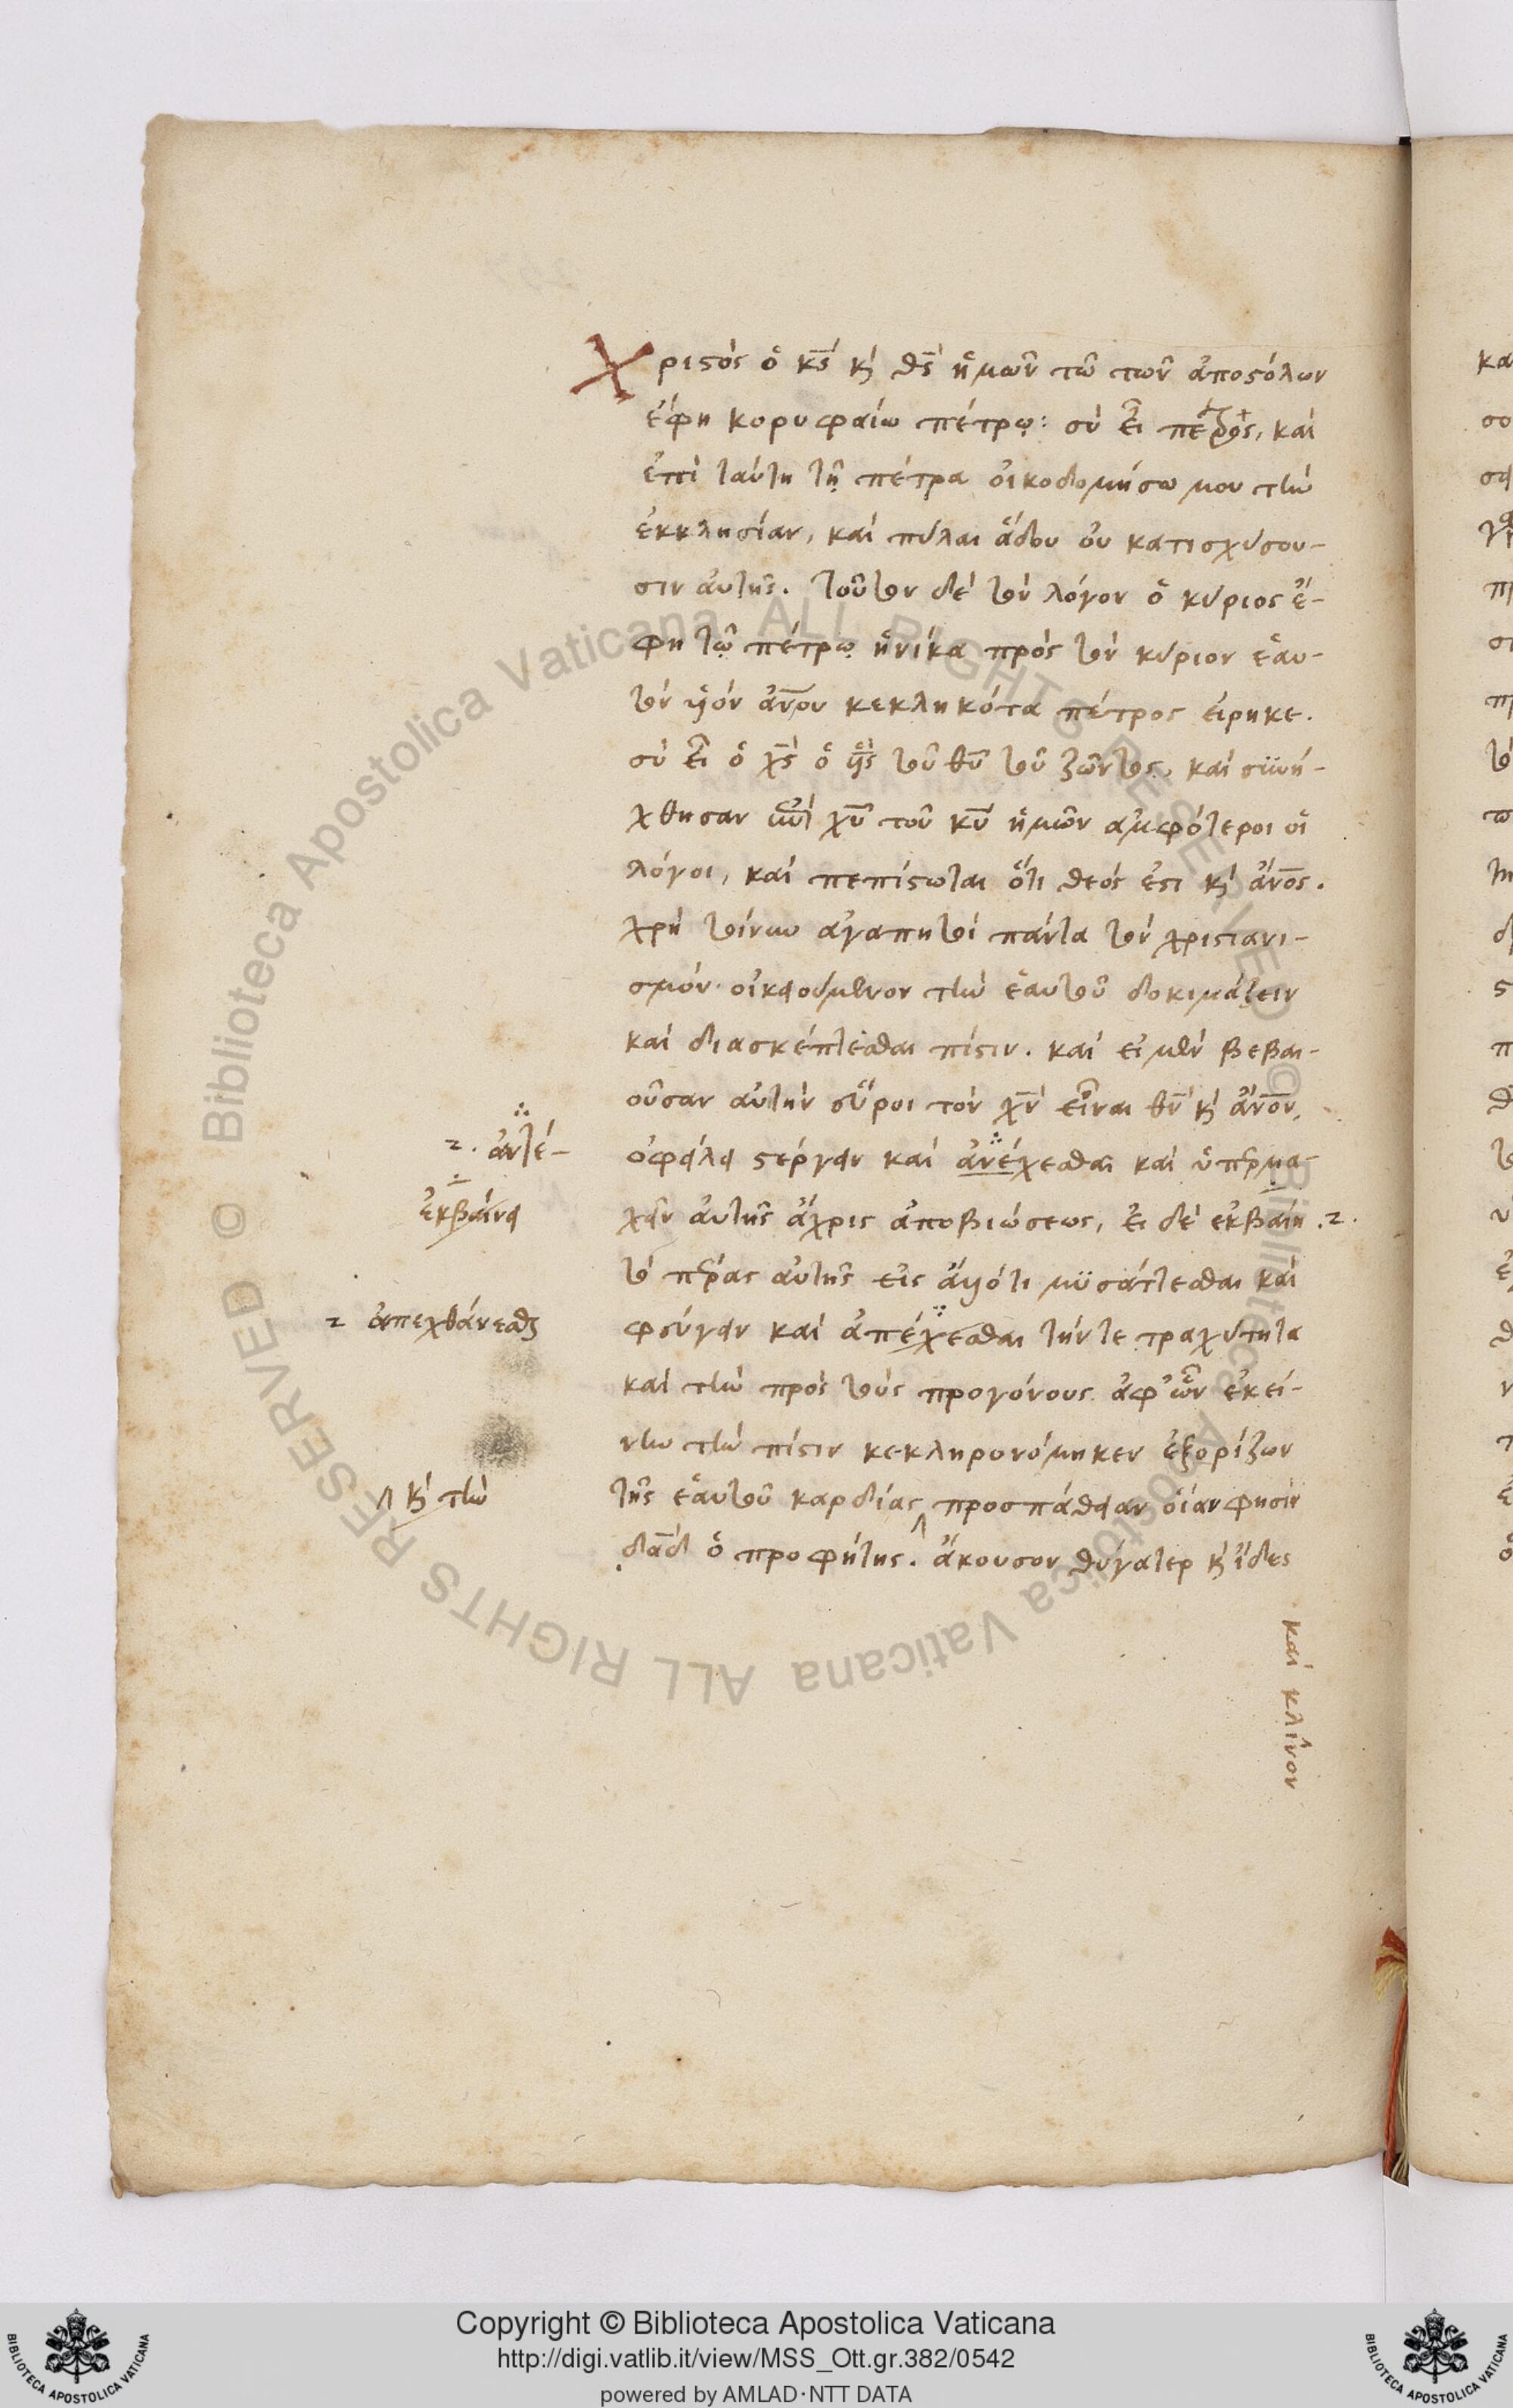 Χριστὸς ὁ κ̅ς̅ κ̀ θ̅ς̅ ἡμῶν τῶ τῶν ἀποστόλων
ἔφη κορυφαίω πέτρῳ: σὺ εἶ πέτρος, καὶ
ἐπὶ ταύτη τῇ πέτρα οἰκοδομήσω μου τὴν
ἐκκλησίαν, καὶ πύλαι ἅδου οὐ κατισχύσου-
σιν αὐτῆς. τοῦτον δὲ τὸν λόγον ὁ κύριος ἔ-
φη τῷ πέτρῳ ἡνίκα πρὸς τὸν κύριον ἑαυ-
τὸν υἱὸν ἀν̅ο̅υ κεκληκότα πέτρος εἴρηκε.
σὺ εἶ ὁ χ̅ς̅ ὁ υ̅ς̅ τοῦ θ̅υ̅ τοῦ ζῶντος, καὶ συνή-
χθησαν χ̅υ̅ τοῦ κ̅υ̅ ἡμῶν αμφότεροι οἱ
λόγοι, καὶ πεπίστωται ὅτι θεός ἐστι κ̀ ἄν̅ο̅ς̅.
χρὴ τοίνυν αγαπητοὶ πάντα τὸν χριστιανι-
σμὸν οἰκειούμενον τὴν ἑαυτοῦ δοκιμάζειν
καὶ διασκέπτεσθαι πίστιν. καὶ εἰ μὲν βεβαι-
οῦσαν αὐτὴν εὕροι τὸν χ̅ν̅ εἶναι θ̅ν̅ κ̀ ἄν̅ο̅ν̅,
ὀφείλει στέργειν καὶ ἀνέχεσθαι καὶ ὑπερμα-
χεῖν αὐτῆς ἄχρις ἀποβιώσεως, εἰ δὲ εκβαίη
τὸ πέρας αὐτῆς εἰς ἄλλό τι μυσάττεσθαι καὶ
φεύγειν καὶ ἀπέχεσθαι τήν τε τραχύτητα
καὶ τὴν πρὸς τοὺς προγόνους ἀφ' ὧν ἐκεί-
νην τὴν πίστιν κεκληρονόμηκεν ἐξορίζων
τῆς ἑαυτοῦ καρδίας προσπάθειαν οἵαν φησὶν
δα̅δ̅ ὁ προφήτης. ἄκουσον θύγατερ κ̀ ἴδες
καὶ κλῖνον
ἀντέ-
ἐκβαίνει
ἀπεχθάνεσθαι
κ̀ τὴν
Copyright © Biblioteca Apostolica Vaticana
http://digi.vatlib.it/view/MSS_Ott.gr.382/0542
powered by AMLAD·NTT DATA
BIBLIOTECA APOSTOLICA VATICANA
BIBLIOTECA APOSTOLICA VATICANA
Biblioteca Apostolica Vaticana ALL RIGHTS RESERVED ©
Biblioteca Apostolica Vaticana ALL RIGHTS RESERVED ©